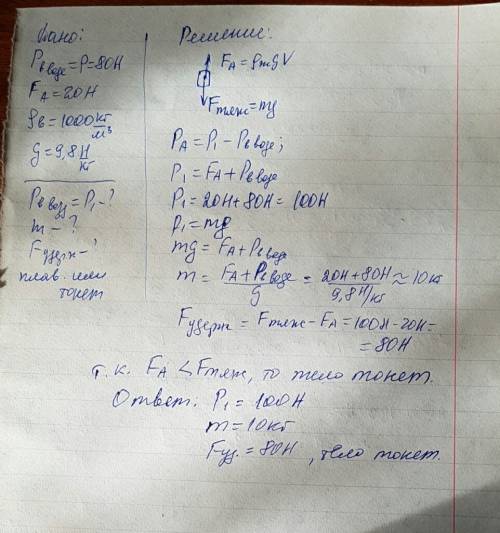 Дано:
P в воде = P = 80Н
F_A = 20Н
ρв = 1000 кг/м³
g = 9,8 Н/кг
P в возд = P₁ - ?
m - ?
F удерж - ?
плав. или
тонет
Решение:
F_A = ρжgV
Fтяж = mg
P_A = P₁ - P в воде;
P₁ = F_A + P в воде
P₁ = 20Н + 80Н = 100Н
P₁ = mg
mg = F_A + P в воде
m = (F_A + P в воде)/g = (20Н + 80Н)/(9,8 Н/кг) ≈ 10кг
F удерж = Fтяж - F_A = 100Н - 20Н =
= 80Н
т.к. F_A < Fтяж, то тело тонет.
Ответ: P₁ = 100Н
m = 10кг
Fуд. = 80Н, тело тонет.